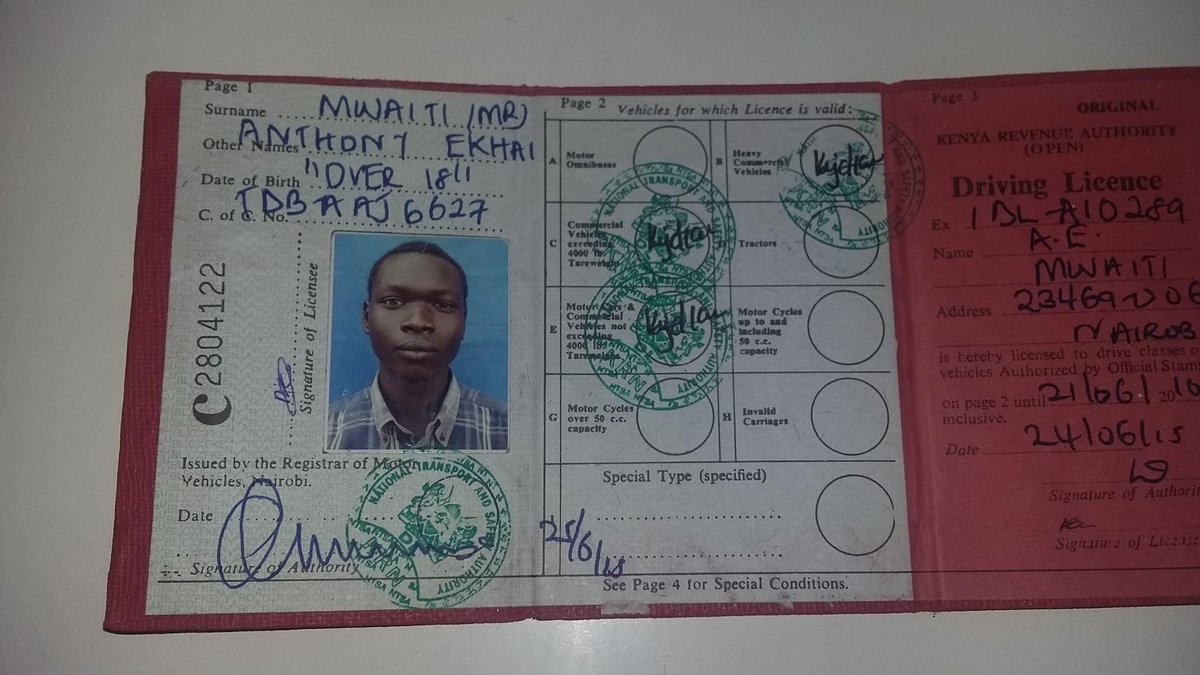 Page 1
Surname MWAITI (MR)
Other Names ANTHONY EKHAI
Date of Birth "OVER 18"
C. of C. No.
C2804122
Signature of Licensee
Issued by the Registrar of Motor
Vehicles, Nairobi.
Date
Signature of Authority
NATIONAL TRANSPORT AND SAFETY AUTHORITY
Page 2 Vehicles for which Licence is valid:
A Motor Omnibuses
B Heavy Commercial Vehicles
C Commercial Vehicles exceeding 4000 lb. Tareweight
Tractors
E Motor Cars & Commercial Vehicles not exceeding 4000 lb. Tareweight
Motor Cycles up to and including 50 c.c. capacity
G Motor Cycles over 50 c.c. capacity
H Invalid Carriages
Special Type (specified)
25/6/15
See Page 4 for Special Conditions.
Page 3
ORIGINAL
KENYA REVENUE AUTHORITY
(OPEN)
Driving Licence
Ex
Name A.E.
MWAITI
Address
is hereby licensed to drive classes
vehicles Authorized by Official Stamp
on page 2 until 21/06/20
inclusive.
Date 24/06/15
Signature of
Signature of